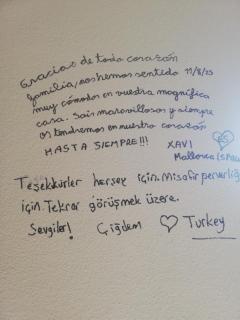 Gracias de todo corazón
familia, nos hemos sentido 11/8/25
muy cómodos en vuestra magnífica
casa. Sois maravillosos y siempre
os tendremos en nuestro corazón
HASTA SIEMPRE!!! XAVI
Mallorca
Teşekkürler herşey için. Misafir perverliğ
için. Tekrar görüşmek üzere.
Sevgiler! Çiğdem ♡ Turkey